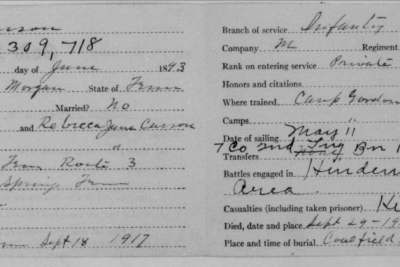 309,718
day of June 1893
Morgan State of Tenn
Married? No
and Rebecca Jane Carson
"
Tenn Route 3
Spring Tenn
Sept 18 1917
Branch of service Infantry
Company M Regiment
Rank on entering service Private
Honors and citations
Where trained. Camp Gordon
Camps "
Date of sailing May 11
7 Co 2nd Bn
Transfers
Battles engaged in Hinden
Area
Casualties (including taken prisoner). Ki
Died, date and place Sept 29-19
Place and time of burial. Coalfield